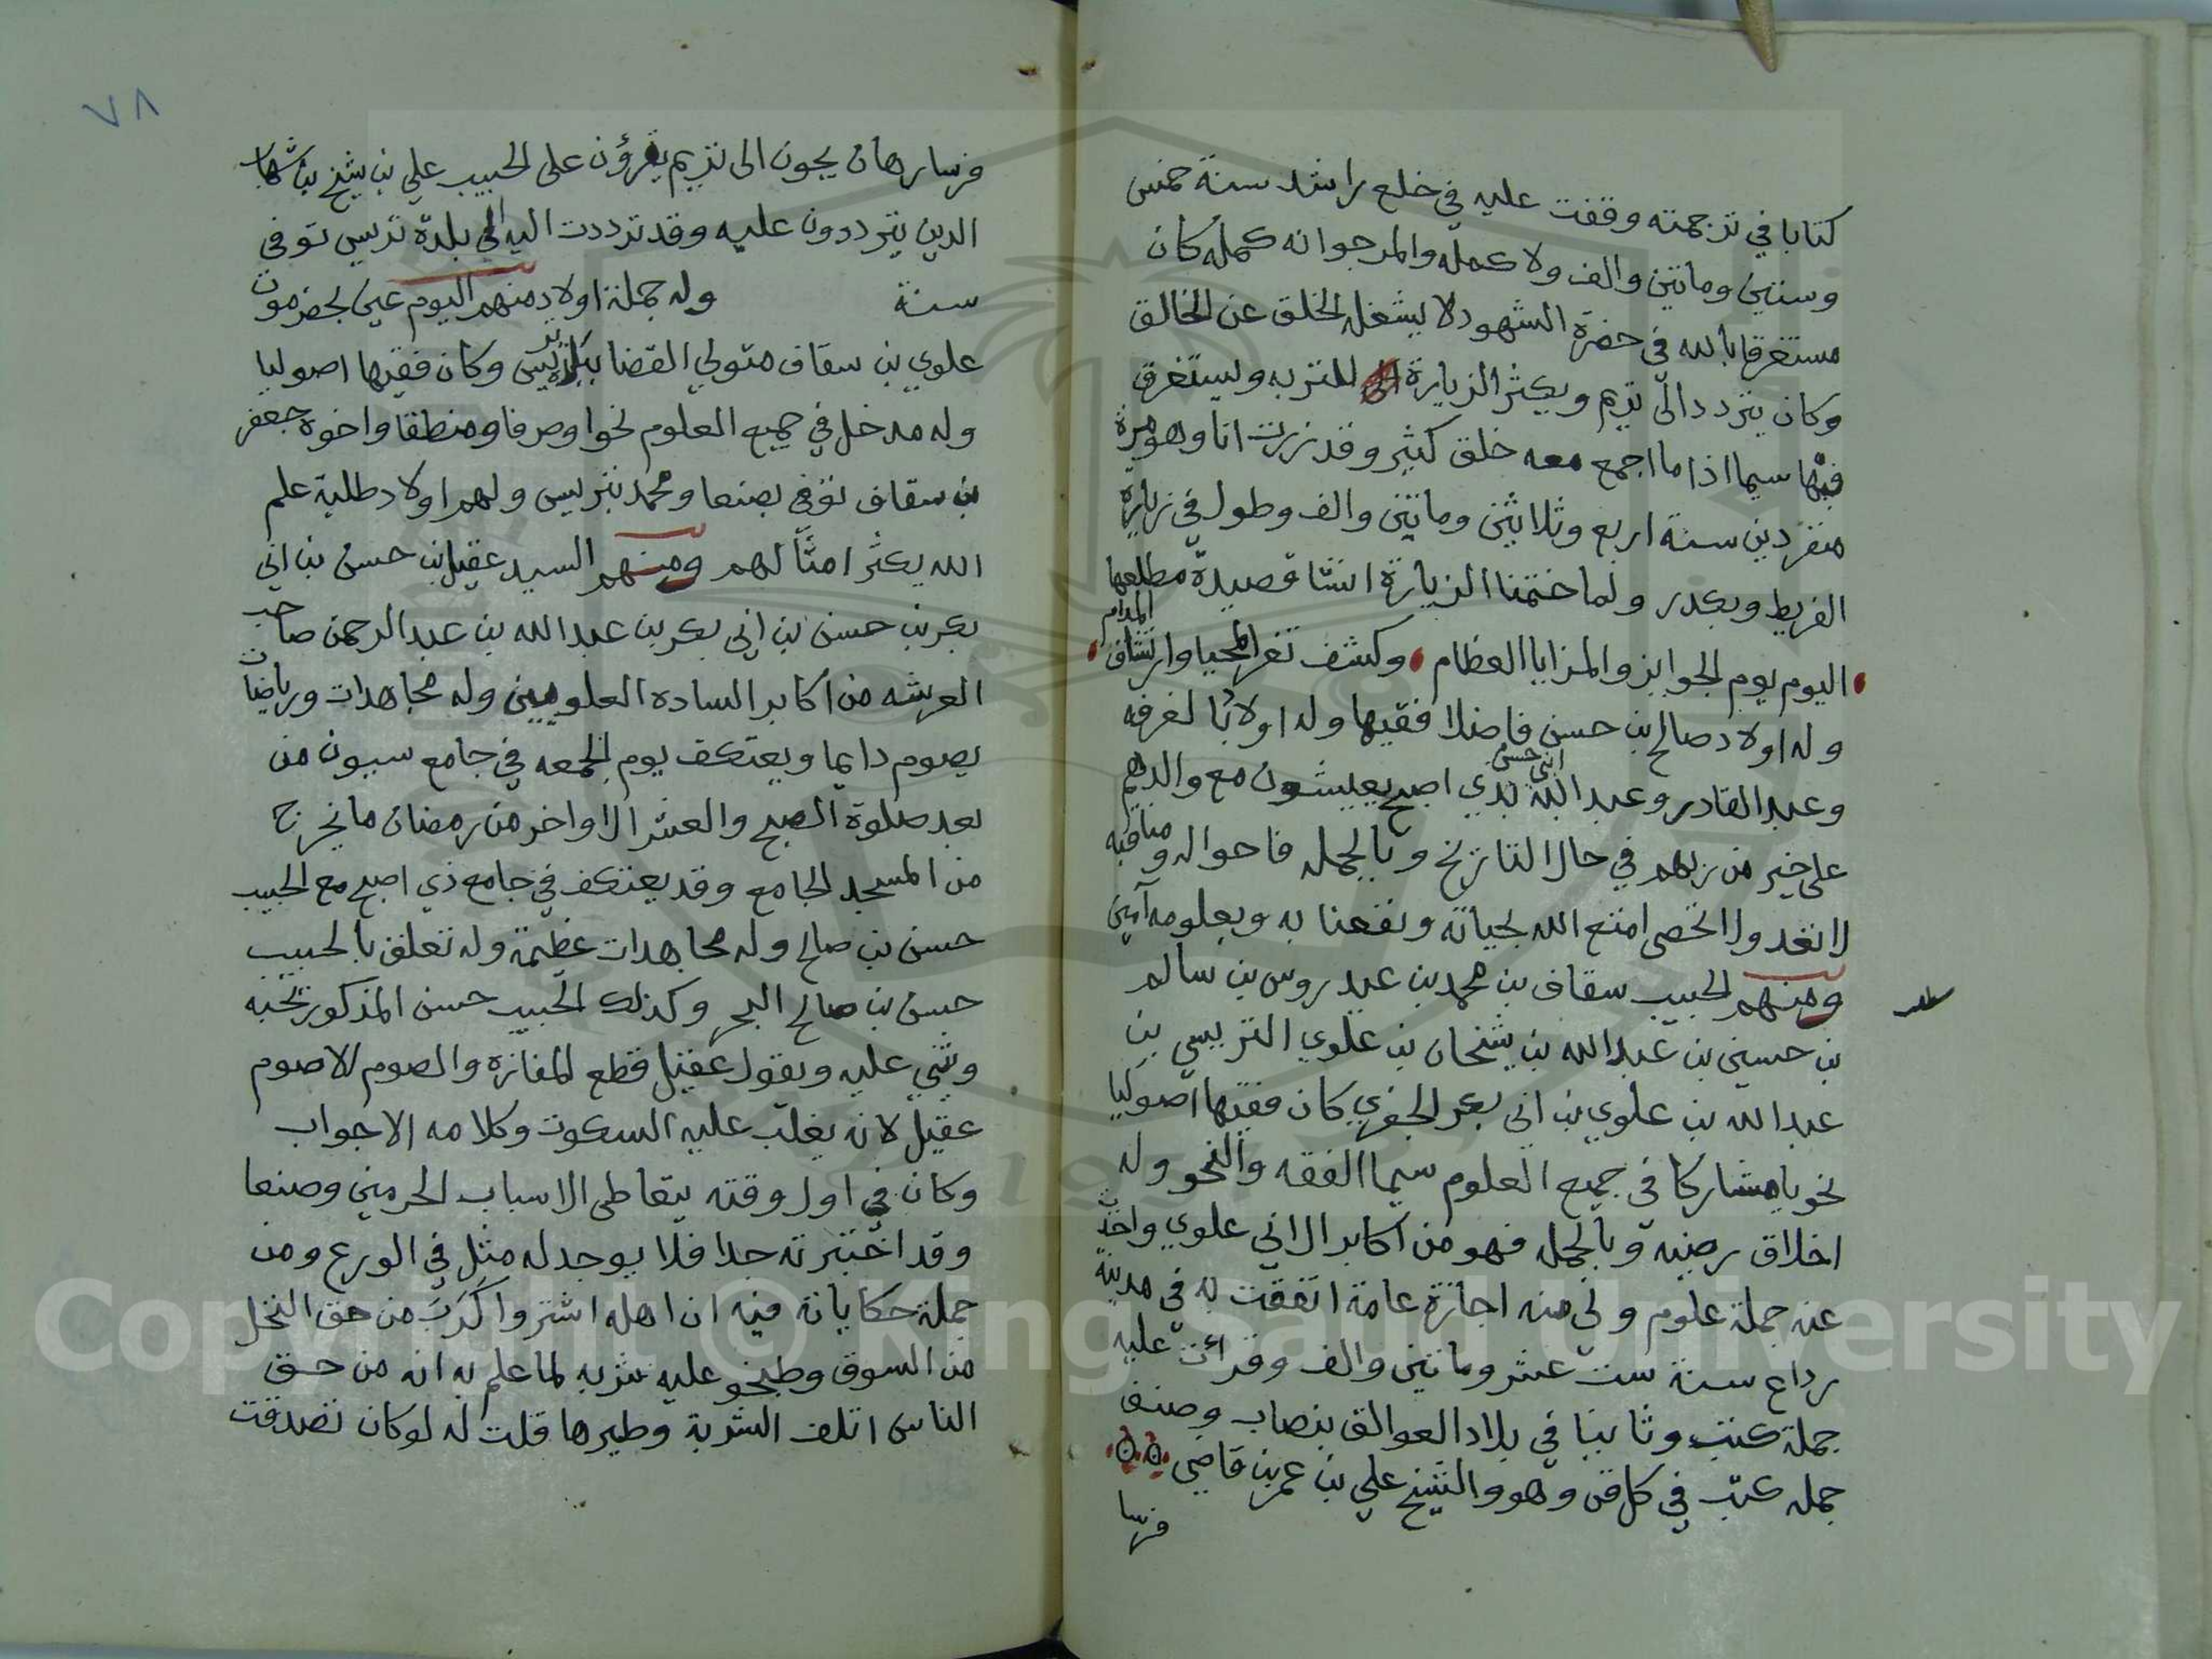 كتابا في ترجمته وقفت عليه في خلع راشد سنة خمس
وستين ومائتين والف ولا كمله والمرجوانه كمله كان
مستغرقا بالله في حضرة الشهود لا يشغله الخلق عن الخالق
وكان يتردد الى تريم ويكثر الزيارة للتربه ويستغرق
فيها سيما اذا ما اجمع معه خلق كثير وقد زرت انا وهو مرة
منفردين سنة اربع وثلاثين ومائتين والف وطول في زيارة
الفريط وبكدر ولما ختمنا الزيارة انشا قصيدة مطلعها
اليوم يوم الجوايز والمزايا العظام وكشف ثغر المحيا وارتشاف المدام
وله اولاد صالح بن حسن فاضلا فقيها وله اولاد بالغرفه
وعبد القادر وعبد الله ابني حسن بذي اصبح يعيشون مع والدهم
على خير من ربهم في حال التاريخ وبالجمله فاحواله ومناقبه
لا تعد ولا تحصى امتع الله بحياته ونفعنا به وبعلومه آمين
ومنهم الحبيب سقاف بن محمد بن عيدروس بن سالم
بن حسين بن عبد الله بن شيخان بن علوي التريسي بن
عبد الله بن علوي بن ابي بكر الجفري كان فقيها اصوليا
نحويا مشاركا في جميع العلوم سيما الفقه والنحو وله
اخلاق رضيه وبالجمله فهو من اكابر ال ابي علوي واخذت
عنه جملة علوم ولي منه اجازة عامة اتفقت به في مدينة
رداع سنة ست عشر ومائتين والف وقرأت عليه
جملة كتب وثانيا في بلاد العوالق بنصاب وصنف
جمله كتب في كل فن وهو والشيخ علي بن عمر بن قاضي
فرسا
٧٨
فرسا رهان يجون الى تريم يقرؤن على الحبيب علي بن شيخ بن شهاب
الدين يترددون عليه وقد ترددت اليه الى بلدة تريس توفى
سنة وله جملة اولاد منهم اليوم عين بحضرموت
علوي بن سقاف متولي القضا ببلد تريس وكان فقيها اصوليا
وله مدخل في جميع العلوم نحوا وصرفا ومنطقا واخوه جعفر
بن سقاف توفى بصنعا ومحمد بتريس ولهم اولاد طلبة علم
الله يكثر امثالهم ومنهم السيد عقيل بن حسن بن ابي
بكر بن حسن بن ابي بكر بن عبد الله بن عبد الرحمن صاحب
العرشه من اكابر الساده العلويين وله مجاهدات ورياضات
يصوم دايما ويعتكف يوم الجمعه في جامع سيون من
بعد صلوة الصبح والعشر الاواخر من رمضان ما يخرج
من المسجد الجامع وقد يعتكف في جامع ذي اصبح مع الحبيب
حسن بن صالح وله مجاهدات عظيمة وله تعلق بالحبيب
حسن بن صالح البحر وكذلك الحبيب حسن المذكور يحبه
ويثني عليه ويقول عقيل قطع المفازه والصوم الا صوم
عقيل لانه يغلب عليه السكوت وكلامه الا جواب
وكان في اول وقته يتعاطى الاسباب الحرمين وصنعا
وقد اختبرته جدا فلا يوجد له مثل في الورع ومن
جملة حكاياته فيه ان اهله اشتروا كرب من حق النخل
من السوق وطبخو عليه شربه لما علم به انه من حق
الناس اتلف الشربة وطيرها قلت له لو كان تصدقت
Copyright © King Saud University